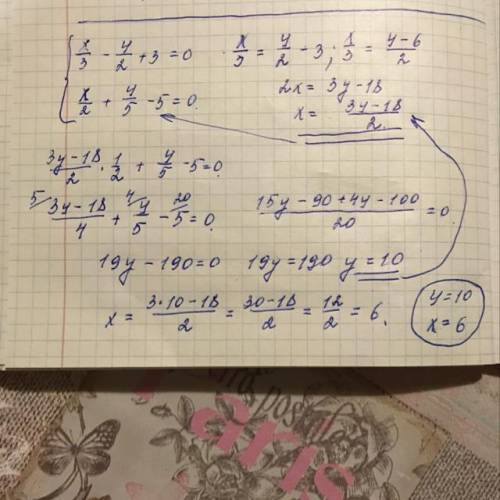 x/3 - y/2 + 3 = 0   x/3 = y/2 - 3; x/3 = (y-6)/2
x/2 + y/5 - 5 = 0.   2x = 3y - 18
x = (3y-18)/2.
(3y-18)/2 · 1/2 + y/5 - 5 = 0.
5/ (3y-18)/4 + 4/ y/5 - 20/ 5 = 0.   (15y - 90 + 4y - 100)/20 = 0.
19y - 190 = 0   19y = 190   y = 10
x = (3·10-18)/2 = (30-18)/2 = 12/2 = 6.   y = 10
x = 6
Paris